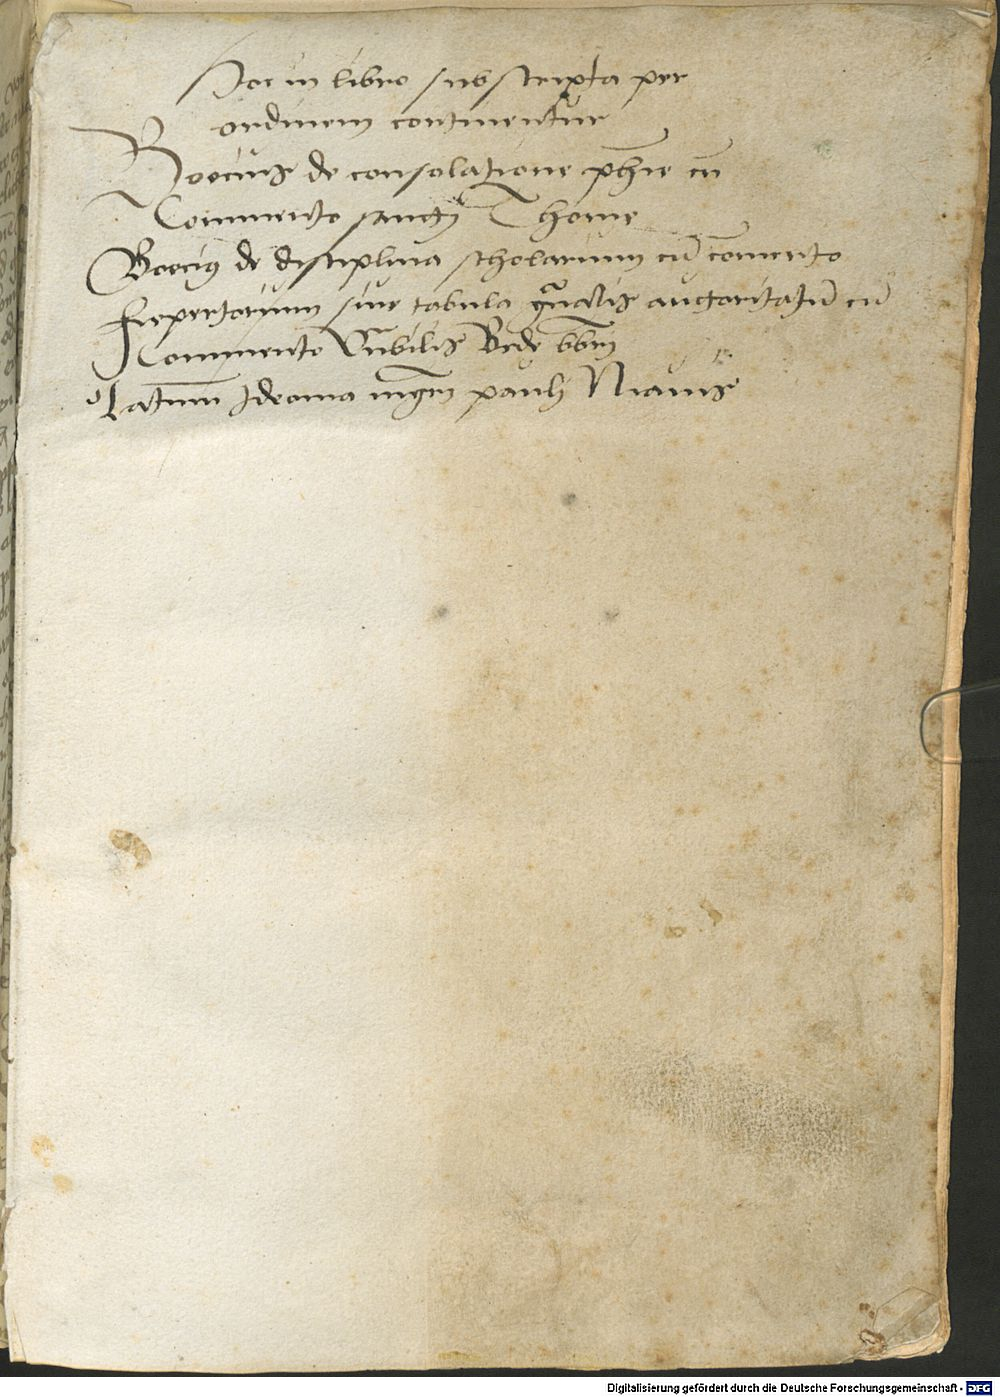 Hoc in libro subscripta per
ordinem continentur
Boecius de consolatione phie cu
Commento sancti Thome
Boecius de disciplina scholarium cu comento
Repertorium siue tabula gnalis auctoritatu cu
Commento Bede
Latinum Ideoma mgri pauli Niauis
Digitalisierung gefördert durch die Deutsche Forschungsgemeinschaft - DFG